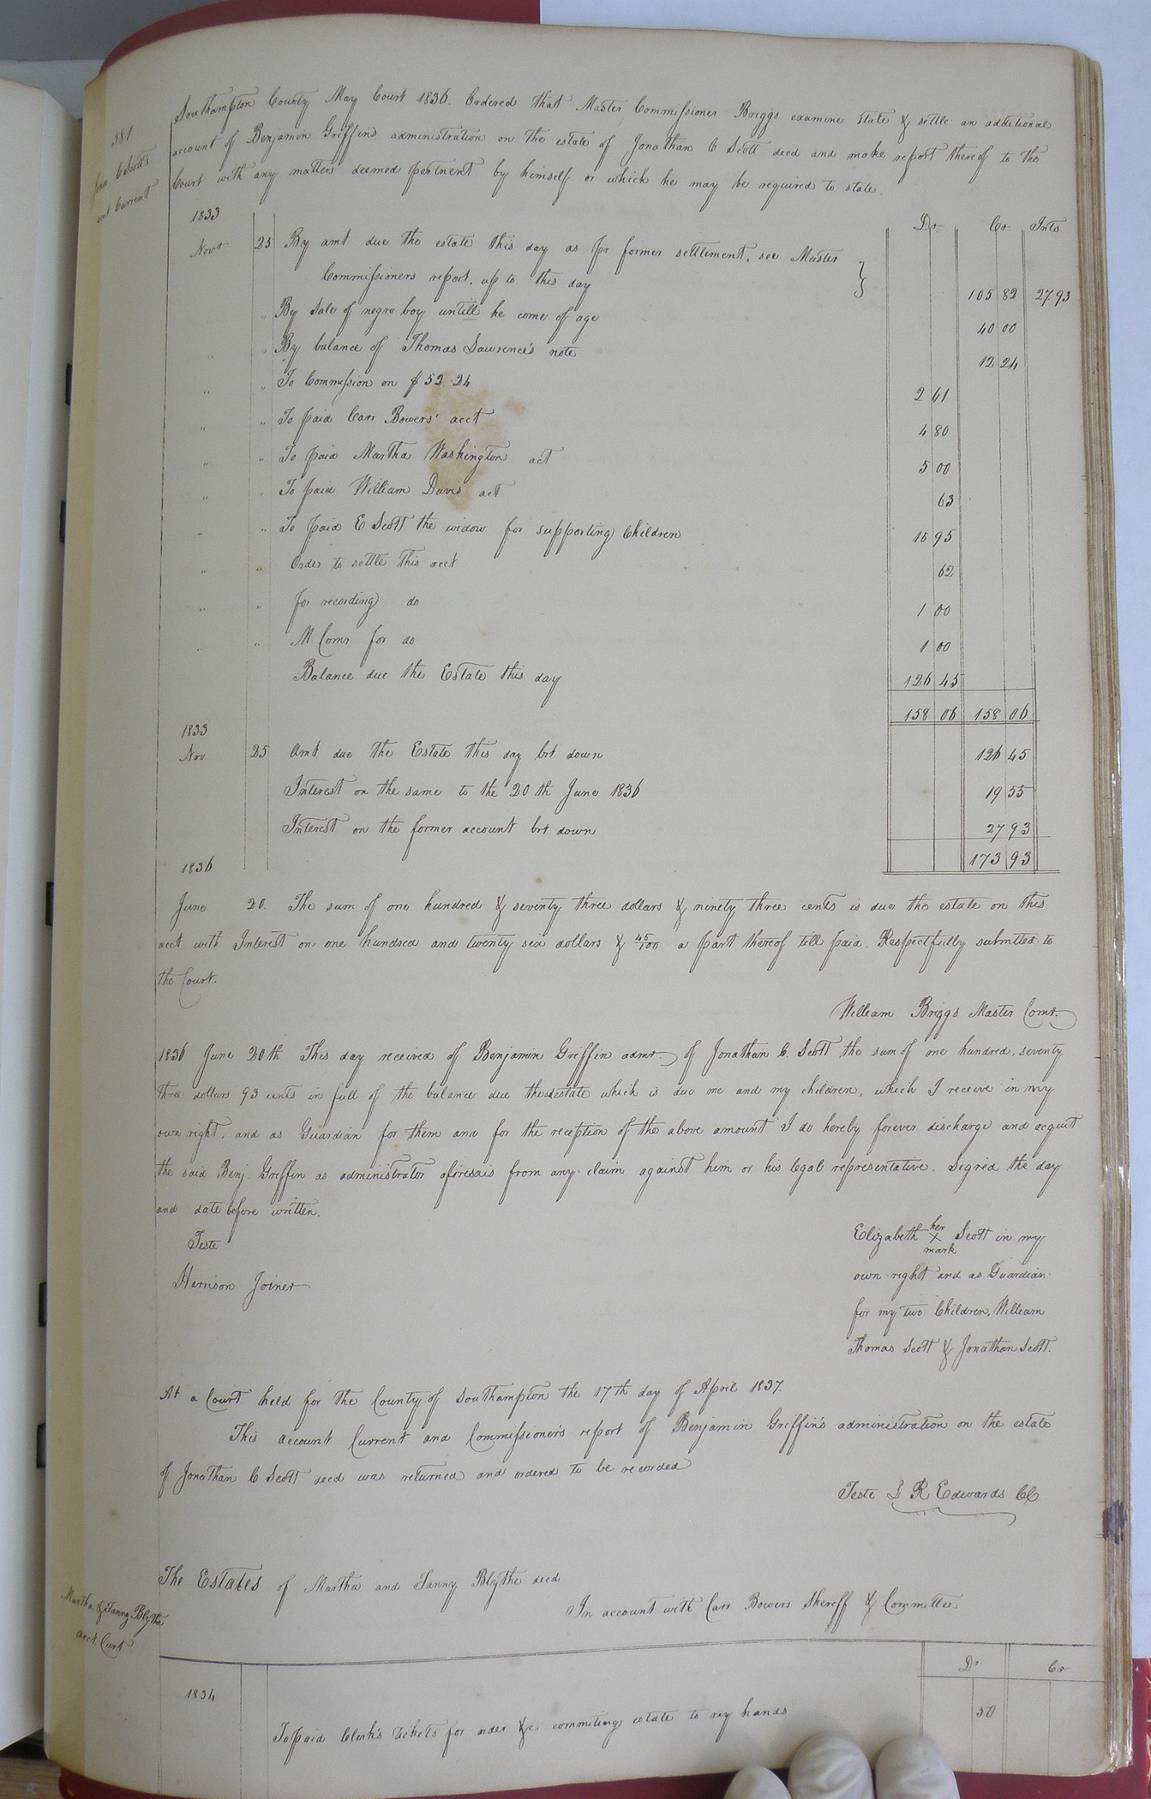 381
Jona C Scott's
act Current
Southampton County May Court 1836. Ordered that Master Commissioner Briggs examine State & settle an additional
account of Benjamin Griffin's administration on the estate of Jonathan C Scott decd and make report thereof to the
Court with any matters deemed pertinent by himself or which he may be required to state.
Dr. Cr. Ints.
1833
Novr 25 By amt due the estate this day as pr former settlement, see Master
Commissioners report, up to this day } 105 82 27.93
" " By Sale of negro boy untill he come of age 40 00
" " By balance of Thomas Lawrence's note 12 24
" " To Commission on $ 52 24 2 61
" " To paid Carr Bowers' acct 4 80
" " To paid Martha Washington act 5 00
" " To paid William Davis act 63
" " To paid E Scott the widow for supporting Children 15 95
" " Order to settle this acct 62
" " for recording do 1 00
" " M Comr for do 1 00
Balance due the Estate this day 126 45
158 06 158 06
1833
Nov 25 Amt due the Estate this day brt down 126 45
Interest on the same to the 20th June 1836 19 55
Interest on the former account brt down 27 93
173 93
1836
June 20. The sum of one hundred & seventy three dollars & ninety three cents is due the estate on this
acct with Interest on one hundred and twenty six dollars & 45/100 a part thereof till paid. Respectfully submitted to
the Court.
William Briggs Master Comr.
1836 June 20th This day received of Benjamin Griffin admr. of Jonathan C. Scott the sum of one hundred, seventy
three dollars 93 cents in full of the balance due the estate which is due me and my children, which I receive in my
own right, and as Guardian for them and for the reception of the above amount I do hereby forever discharge and acquit
the said Benj. Griffin as administrator aforesaid from any claim against him or his legal representative. Signed the day
and date before written.
Teste
Harrison Joiner
Elizabeth her X mark Scott in my
own right and as Guardian
for my two Children, William
Thomas Scott & Jonathan Scott.
At a Court held for the County of Southampton the 17th day of April 1837.
This account Current and Commissioner's report of Benjamin Griffin's administration on the estate
of Jonathan C Scott decd was returned and ordered to be recorded
Teste L R Edwards CC
Martha & Fanny Blythe
acct Curt
The Estates of Martha and Fanny Blythe decd
In account with Carr Bowers Sheriff & Committee
Dr Cr
1834
To paid Clerk's tickets for order &c commiting estate to my hands 50